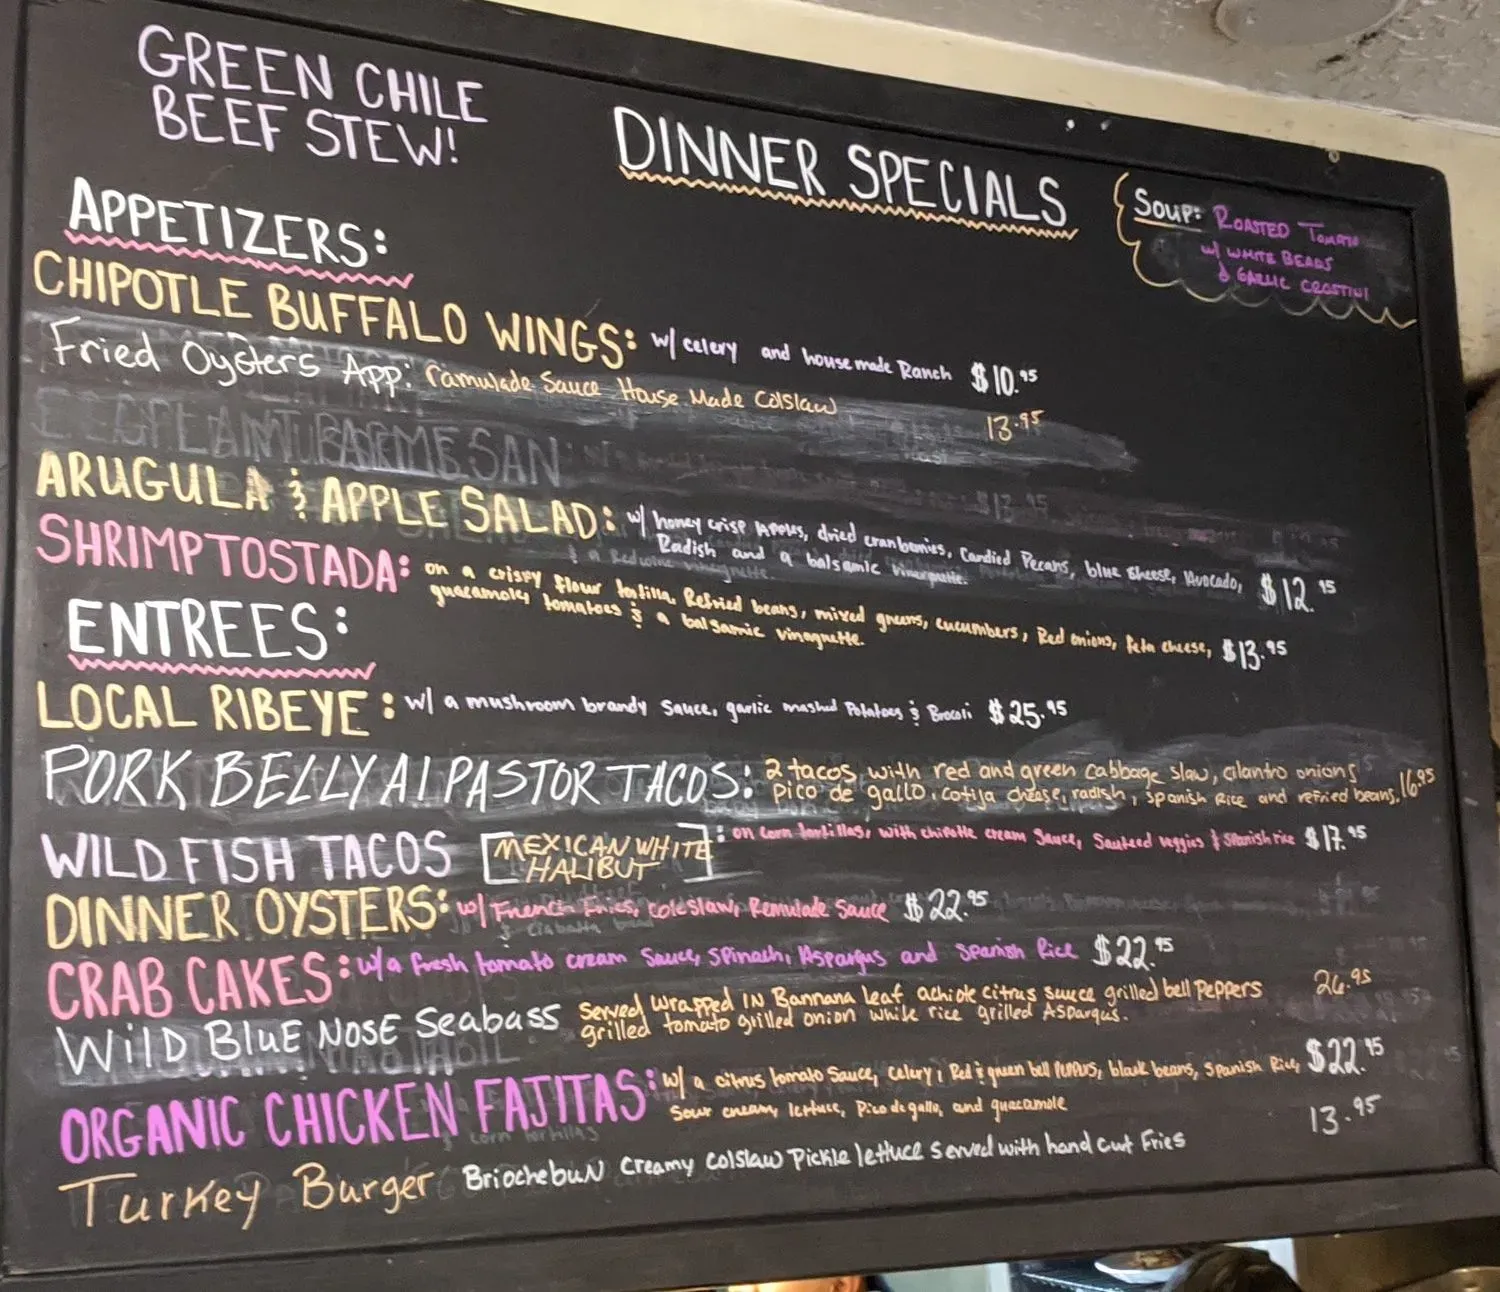 GREEN CHILE
BEEF STEW!
DINNER SPECIALS
Soup: ROASTED TOMATO
w/ WHITE BEANS
& GARLIC CROSTINI
APPETIZERS:
CHIPOTLE BUFFALO WINGS: w/ celery and house made Ranch $10.95
Fried Oysters App: ramulade Sauce House Made Colslaw 13.95
EGGPLANT PARMESAN
ARUGULA & APPLE SALAD: w/ honey crisp Apples, dried cranberries, Candied Pecans, blue cheese, Avocado,
Radish and a balsamic vinaigrette. $12.95
SHRIMP TOSTADA: on a crispy flour tortilla, Refried beans, mixed greens, cucumbers, Red onions, feta cheese,
guacamole, tomatoes & a balsamic vinagrette. $13.95
ENTREES:
LOCAL RIBEYE: w/ a mushroom brandy Sauce, garlic mashed Potatoes & Brocoli $25.95
PORK BELLY Al PASTOR TACOS: 2 tacos with red and green cabbage slaw, cilantro onions
pico de gallo, cotija cheese, radish, spanish Rice and refried beans. 16.95
WILD FISH TACOS [MEXICAN WHITE
HALIBUT]: on corn tortillas, with chipotle cream sauce, Sauteed veggies & Spanish rice $17.95
DINNER OYSTERS: w/ French Fries, coleslaw, Remulade Sauce $22.95
CRAB CAKES: w/a fresh tomato cream Sauce, Spinach, Aspargus and Spanish Rice $22.95
Wild Blue Nose Seabass Served wrapped IN Bannana leaf, achiote citrus sauce grilled bell Peppers
grilled tomato grilled onion white rice grilled Aspargus. 26.95
ORGANIC CHICKEN FAJITAS: w/ a citrus tomato Sauce, Celery, Red & green bell peppers, black beans, Spanish Rice,
Sour cream, lettuce, Pico de gallo, and guacamole $22.95
Turkey Burger Brioche buN creamy Colslaw Pickle lettuce Served with hand cut Fries 13.95